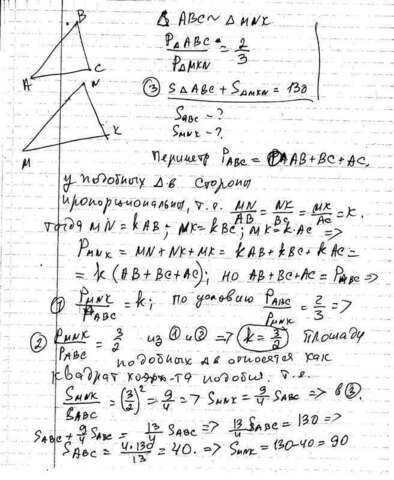 B
A
C
N
M
K
Δ ABC ~ Δ MNK
PΔABC / PΔMKN = 2/3
③ SΔABC + SΔMKN = 130
SABC - ?
SMNK - ?
Периметр PABC = AB+BC+AC,
у подобных Δ-в стороны
пропорциональны, т.е. MN/AB = NK/BC = MK/AC = k.
тогда MN = kAB; MK = kBC; MK = k·AC =>
PMNK = MN+NK+MK = kAB+kBC+kAC =
= k(AB+BC+AC); но AB+BC+AC = PABC =>
① PMNK / PABC = k; по условию PABC / PMNK = 2/3 =>
② PMNK / PABC = 3/2 из ① и ② => k = 3/2 Площади
подобных Δ-в относятся как
квадрат коэф-та подобия. т.е.
SMNK / SABC = (3/2)² = 9/4 => SMNK = 9/4 SABC => в ③.
SABC + 9/4 SABC = 13/4 SABC => 13/4 SABC = 130 =>
SABC = 4·130 / 13 = 40. => SMNK = 130-40 = 90